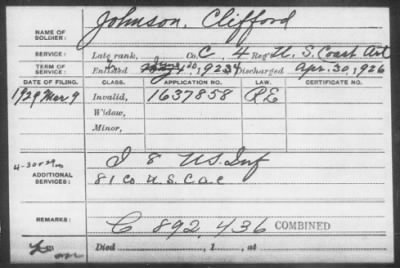 NAME OF SOLDIER: Johnson, Clifford
SERVICE: Late rank, Co. C, 4 Reg't U. S. Coast Art
TERM OF SERVICE: Enlisted 1923 Discharged Apr. 30, 1926
DATE OF FILING. CLASS. APPLICATION NO. LAW. CERTIFICATE NO.
1929 Mar 9 Invalid, 1637858 PE
Widow,
Minor,
ADDITIONAL SERVICES: I 8 U.S. Inf
81 Co U.S. C a c
REMARKS: C 892,436 COMBINED
Died , 1 , at